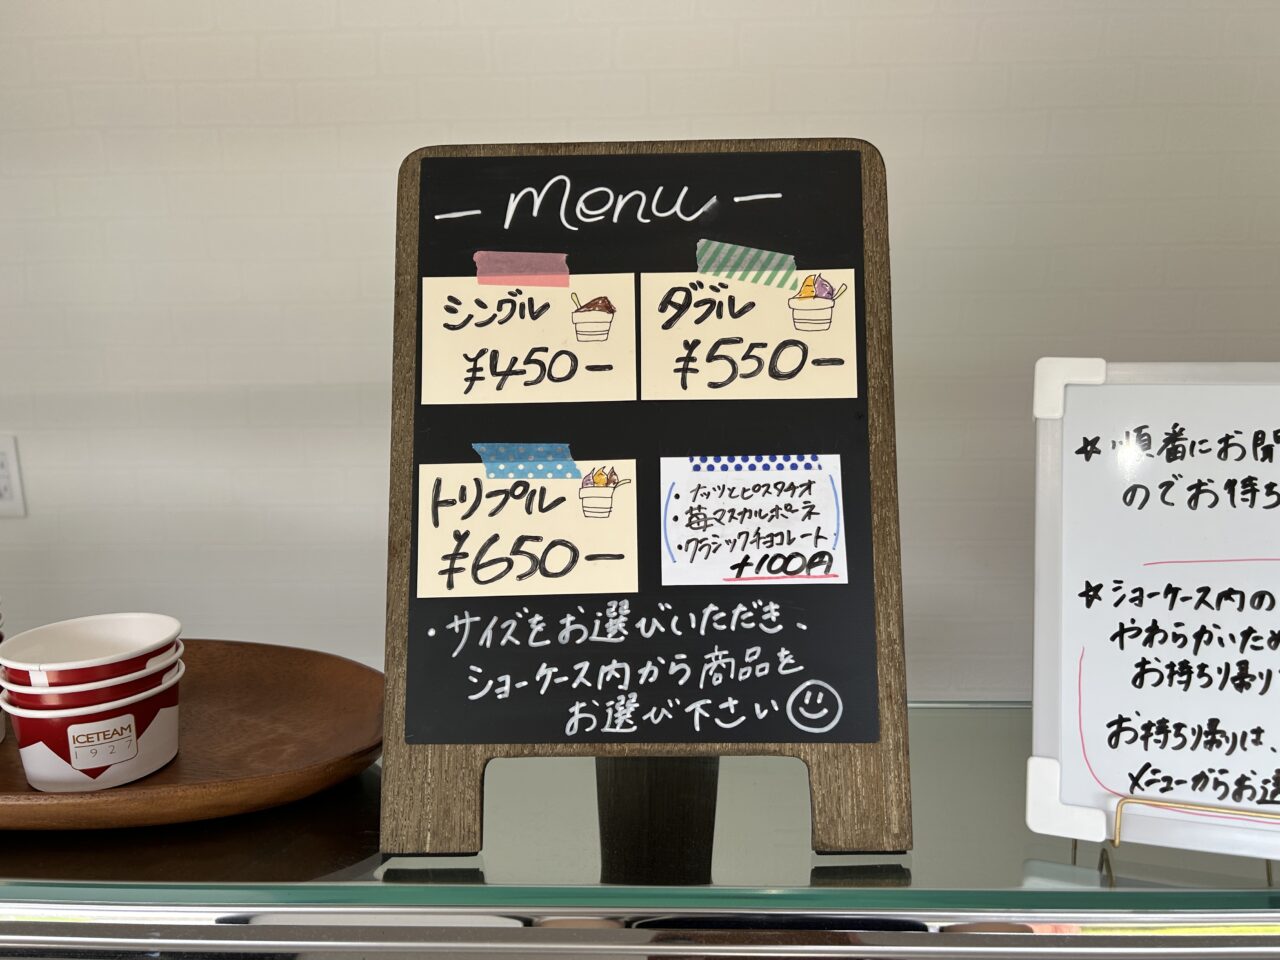 - Menu -
シングル
¥450-
ダブル
¥550-
トリプル
¥650-
・ナッツとピスタチオ
・苺マスカルポーネ
・クラシックチョコレート
+100円
・サイズをお選びいただき、
ショーケース内から商品を
お選び下さい
ICETEAM
1927
☆順番にお
のでお待ち
☆ショーケース内の
やわらかいため
お持ち帰り
お持ち帰りは、
メニューからお選